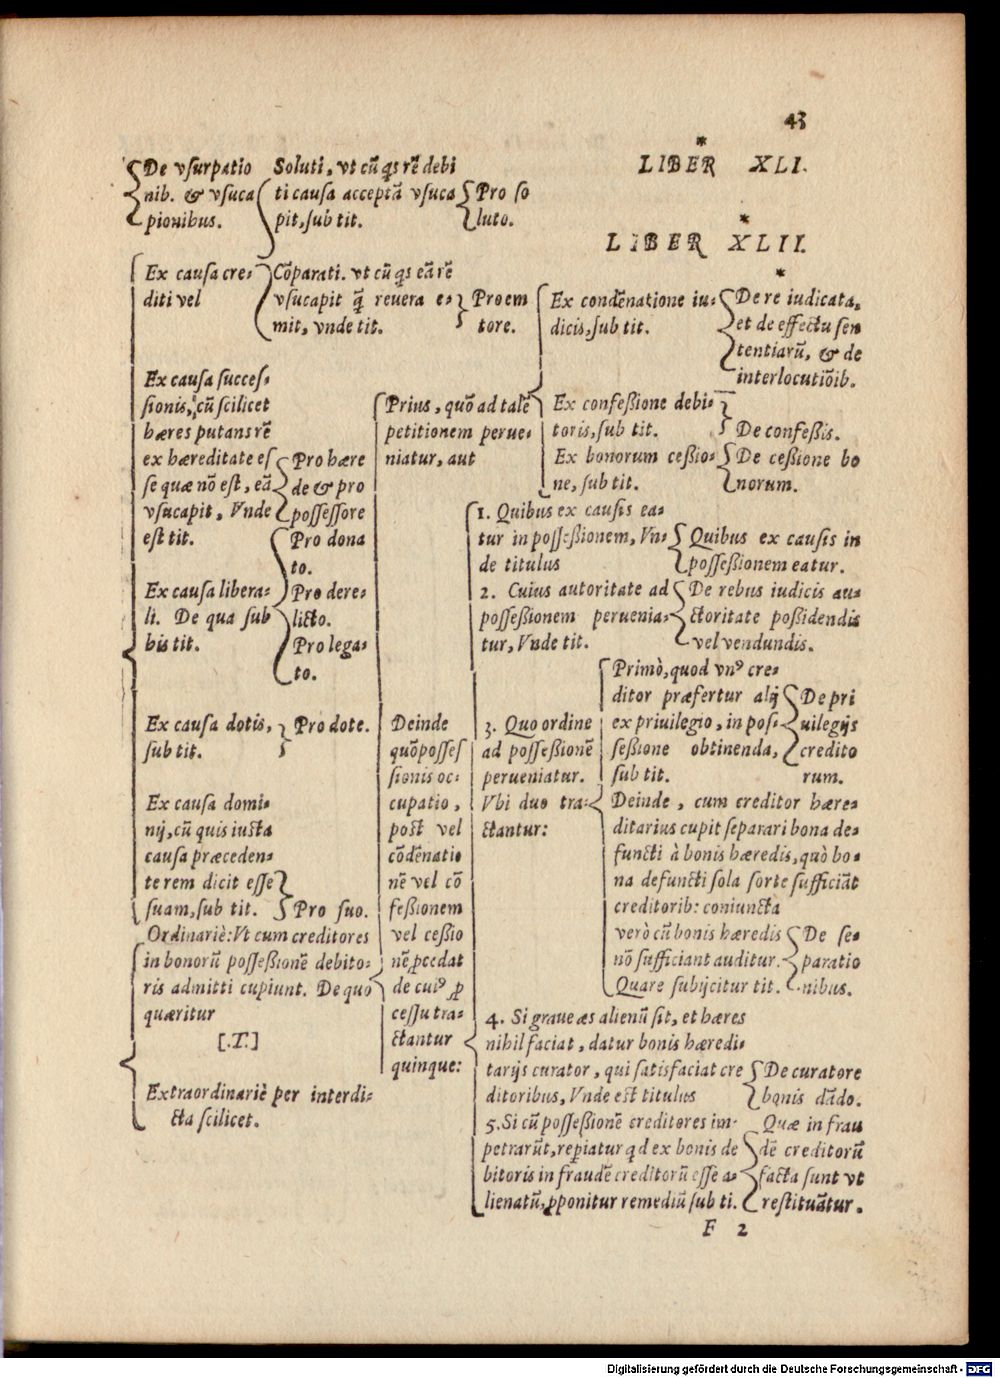 43
LIBER XLI.
De vsurpatio
nib. & vsuca
pionibus.
Soluti, vt cũ qs rẽ debi
ti causa acceptã vsuca
pit, sub tit.
Pro so
luto.
LIBER XLII.
Ex causa cre-
diti vel
Cõparati. vt cũ qs eã rẽ
vsucapit q̃ reuera e-
mit, vnde tit.
Pro em
tore.
Ex causa succes-
sionis, cũ scilicet
hæres putans rẽ
ex hæreditate es
se quæ nõ est, eã
vsucapit, Vnde
est tit.
Pro hære
de & pro
possessore
Ex causa libera-
li. De qua sub
bis tit.
Pro dona
to.
Pro dere-
licto.
Pro lega-
to.
Ex causa dotis,
sub tit.
Pro dote.
Ex causa domi-
nij, cũ quis iusta
causa præceden-
te rem dicit esse
suam, sub tit.
Pro suo.
Ordinariè: Vt cum creditores
in bonorũ possessionẽ debito-
ris admitti cupiunt. De quo
quæritur
[.T.]
Extraordinariè per interdi-
cta scilicet.
Prius, quõ ad talẽ
petitionem perue-
niatur, aut
Ex condẽnatione iu-
dicis, sub tit.
De re iudicata,
et de effectu sen
tentiarũ, & de
interlocutiõib.
Ex confeßione debi-
toris, sub tit.
De confeßis.
Ex bonorum ceßio-
ne, sub tit.
De ceßione bo
norum.
Deinde
quõ posses
sionis oc-
cupatio,
post vel
cõdẽnatio
nẽ vel cõ
feßionem
vel ceßio
nẽ ꝓcedat
de cuiꝰ ꝓ
cessu tra-
ctantur
quinque:
1. Quibus ex causis ea-
tur in posseßionem, Vn-
de titulus
Quibus ex causis in
posseßionem eatur.
2. Cuius autoritate ad
posseßionem peruenia-
tur, Vnde tit.
De rebus iudicis au-
ctoritate poßidendis
vel vendundis.
3. Quo ordine
ad posseßionẽ
perueniatur.
Vbi duo tra-
ctantur:
Primò, quod vnꝰ cre-
ditor præfertur alij
ex priuilegio, in pos-
seßione obtinenda,
sub tit.
De pri
uilegijs
credito
rum.
Deinde, cum creditor hære-
ditarius cupit separari bona de-
functi à bonis hæredis, quò bo-
na defuncti sola sorte sufficiãt
creditorib: coniuncta
verò cũ bonis hæredis
nõ sufficiant auditur.
Quare subijcitur tit.
De se-
paratio
nibus.
4. Si graue æs alienũ sit, et hæres
nihil faciat, datur bonis hæredi-
tarijs curator, qui satisfaciat cre
ditoribus, Vnde est titulus
De curatore
bonis dãdo.
5. Si cũ posseßionẽ creditores im-
petrarũt, reꝑiatur qd ex bonis de
bitoris in fraudẽ creditorũ esse a-
lienatũ, ꝓponitur remediũ sub ti.
Quæ in frau
dẽ creditorũ
facta sunt vt
restituãtur.
F 2
Digitalisierung gefördert durch die Deutsche Forschungsgemeinschaft - DFG